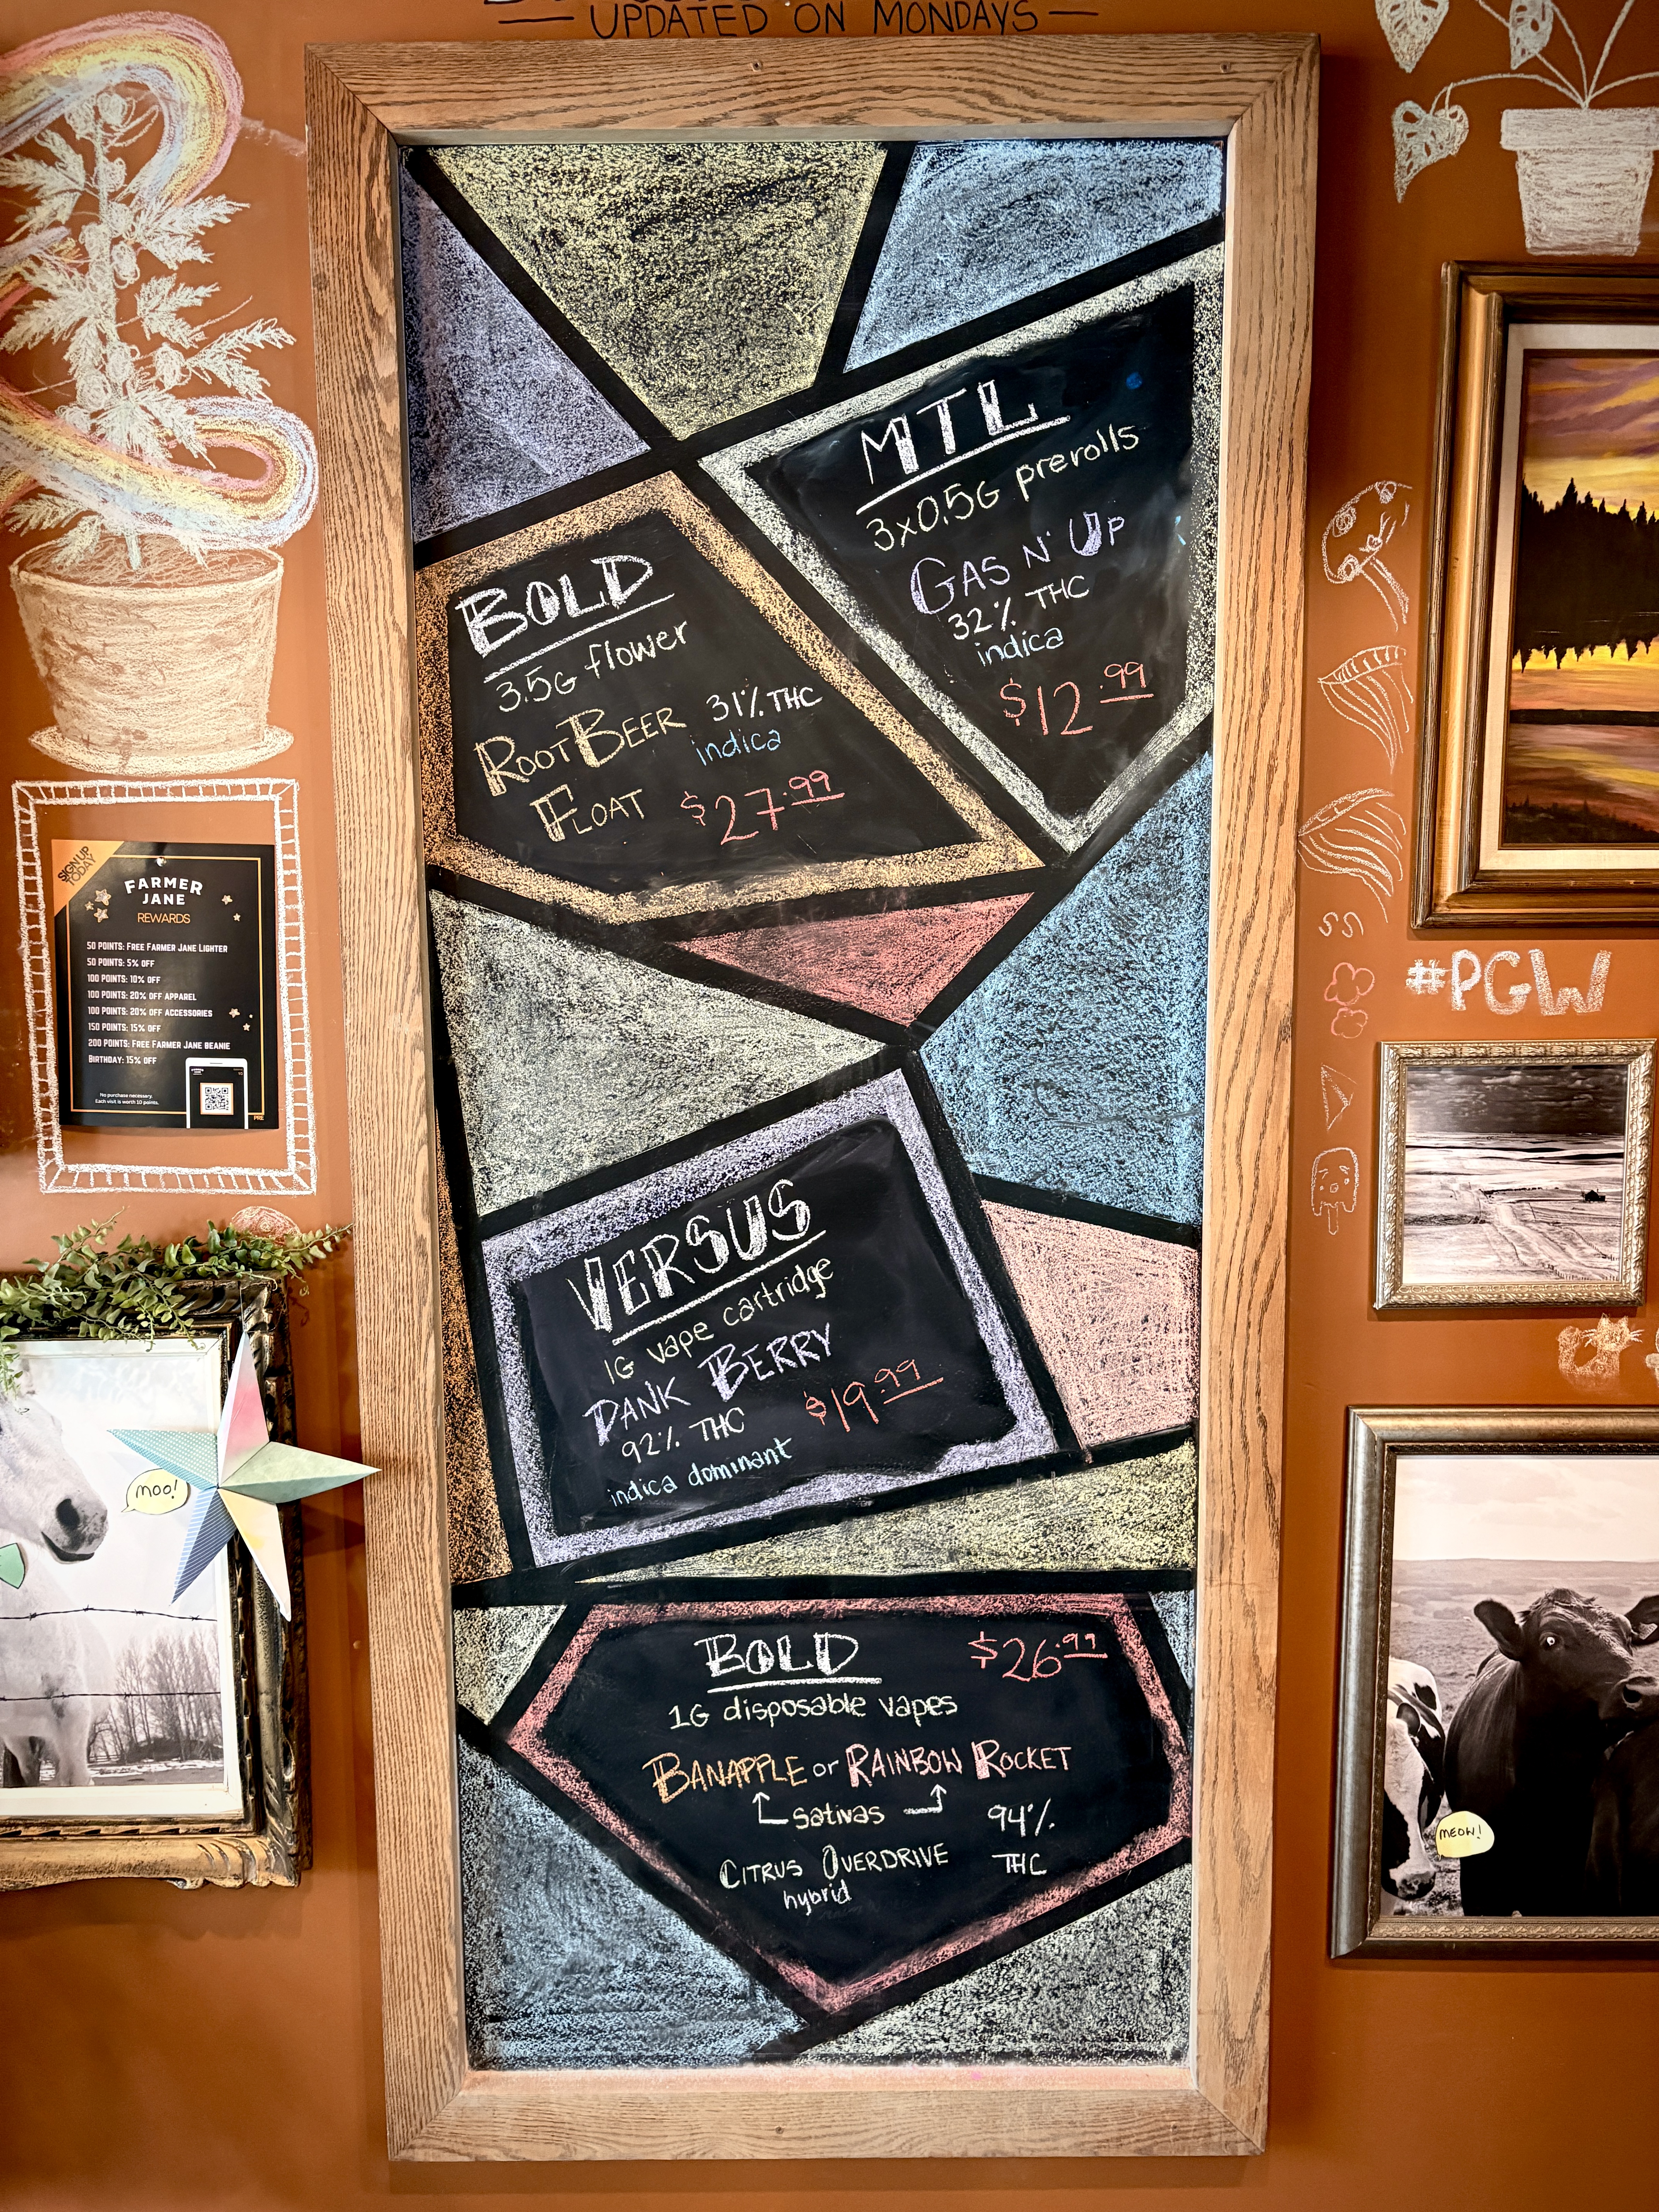 — UPDATED ON MONDAYS —
MTL
3x0.5G prerolls
GAS N' UP
32% THC
indica
$12.99
BOLD
3.5G flower
ROOT BEER 31% THC
indica
FLOAT $27.99
VERSUS
1G vape cartridge
DANK BERRY
92% THC $19.99
indica dominant
BOLD $26.99
1G disposable vapes
BANAPPLE or RAINBOW ROCKET
sativas 94%
CITRUS OVERDRIVE THC
hybrid
SIGN UP
TODAY
FARMER
JANE
REWARDS
50 POINTS: FREE FARMER JANE LIGHTER
50 POINTS: 5% OFF
100 POINTS: 10% OFF
100 POINTS: 20% OFF APPAREL
100 POINTS: 20% OFF ACCESSORIES
150 POINTS: 15% OFF
200 POINTS: FREE FARMER JANE BEANIE
BIRTHDAY: 15% OFF
No purchase necessary.
Each visit is worth 10 points.
MOO!
#PGW
MEOW!